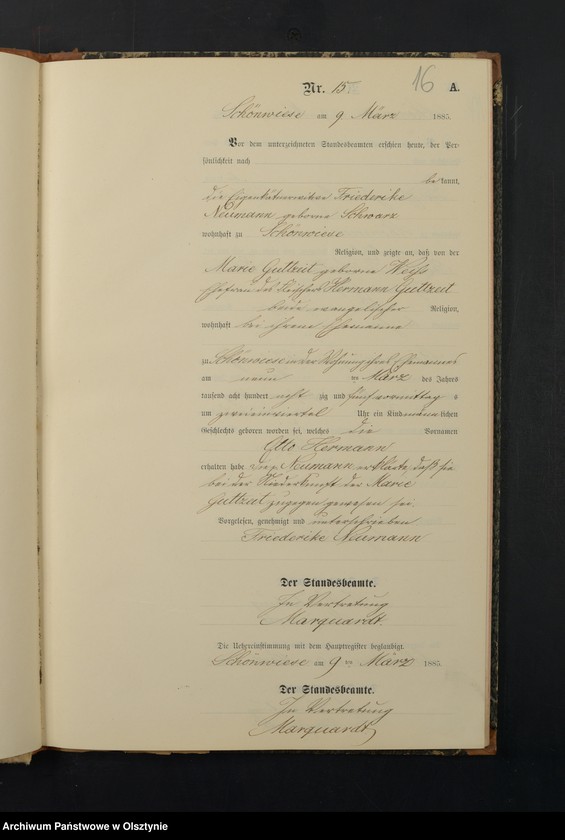 16
Nr. 15 A.
Schönwiese am 9 März 1885.
Vor dem unterzeichneten Standesbeamten erschien heute, der Per-
sönlichkeit nach
bekannt,
die Eigenkätnerwitwe Friederike
Neumann geborne Schwarz
wohnhaft zu Schönwiese
Religion, und zeigte an, daß von der
Marie Guttzeit geborne Weiß
Ehefrau des Hermann Guttzeit
beide evangelischer Religion,
wohnhaft bei ihrem Ehemanne
zu Schönwiese in der Wohnung ihres Ehemannes
am neun ten März des Jahres
tausend acht hundert acht zig und fünf vormittag s
um zweieinviertel Uhr ein Kind männlichen
Geschlechts geboren worden sei, welches die Vornamen
Otto Hermann
erhalten habe Neumann erklärte, daß sie
bei der Niederkunft der Marie
Guttzeit zugegen gewesen sei.
Vorgelesen, genehmigt und unterschrieben
Friederike Neumann
Der Standesbeamte.
In Vertretung
Marquardt.
Die Uebereinstimmung mit dem Hauptregister beglaubigt.
Schönwiese am 9 ten März 1885.
Der Standesbeamte.
In Vertretung
Marquardt
Archiwum Państwowe w Olsztynie